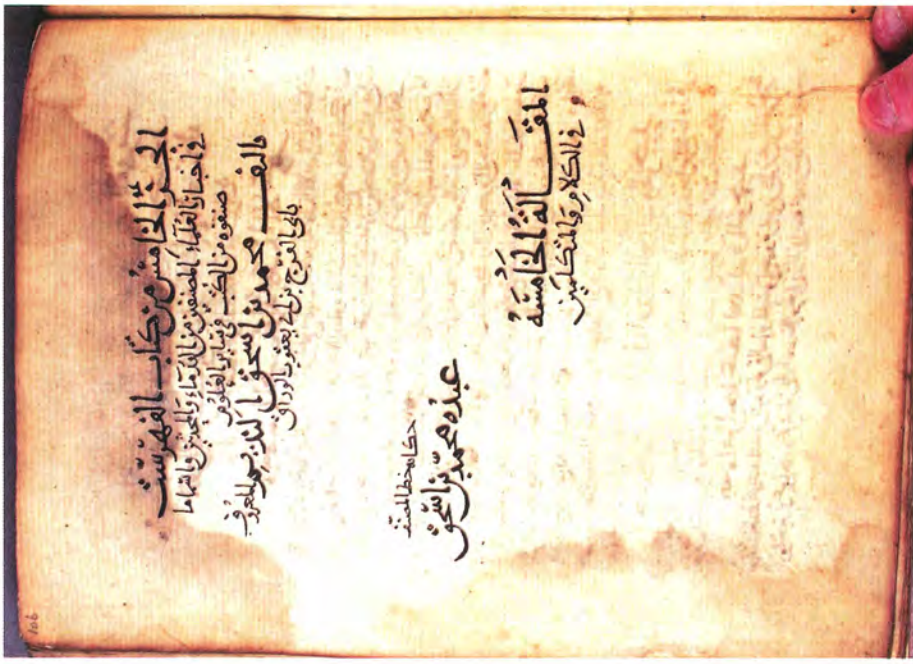 الجزؤ الخامس من كتاب الفهرست
في اخبار العلماء المصنفين من القدماء والمحدثين واسماء ما
صنفوه من الكتب في ساير العلوم
تالف محمد بن اسحق النديم المعروف
بابي الفرج بن ابي يعقوب الوراق
حكاية خط المصنف
عبده محمد بن اسحق
المقالة الخامسة
في الكلام والمتكلمين
106